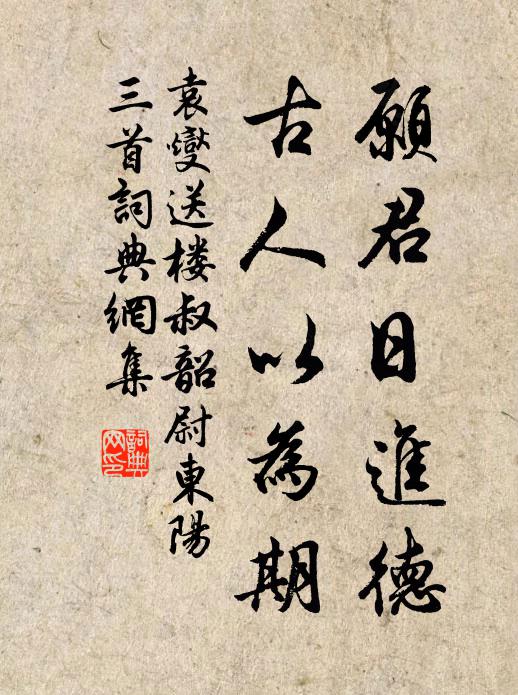 願君日進德
古人以為期
袁燮送楼叔韶尉東陽
三首詞典網集
詞典網印